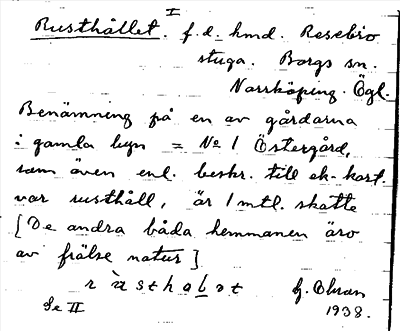 I
Rusthållet. f.d. kmd. Resebro
stuga. Borgs sn.
Norrköping. Ögl.
Benämning på en av gårdarna
i gamla byn = No 1 Östergård,
som även enl. beskr. till ek. kart.
var rusthåll, är 1 mtl. skatte
[De andra båda hemmanen äro
av frälse natur]
Se II 1938.